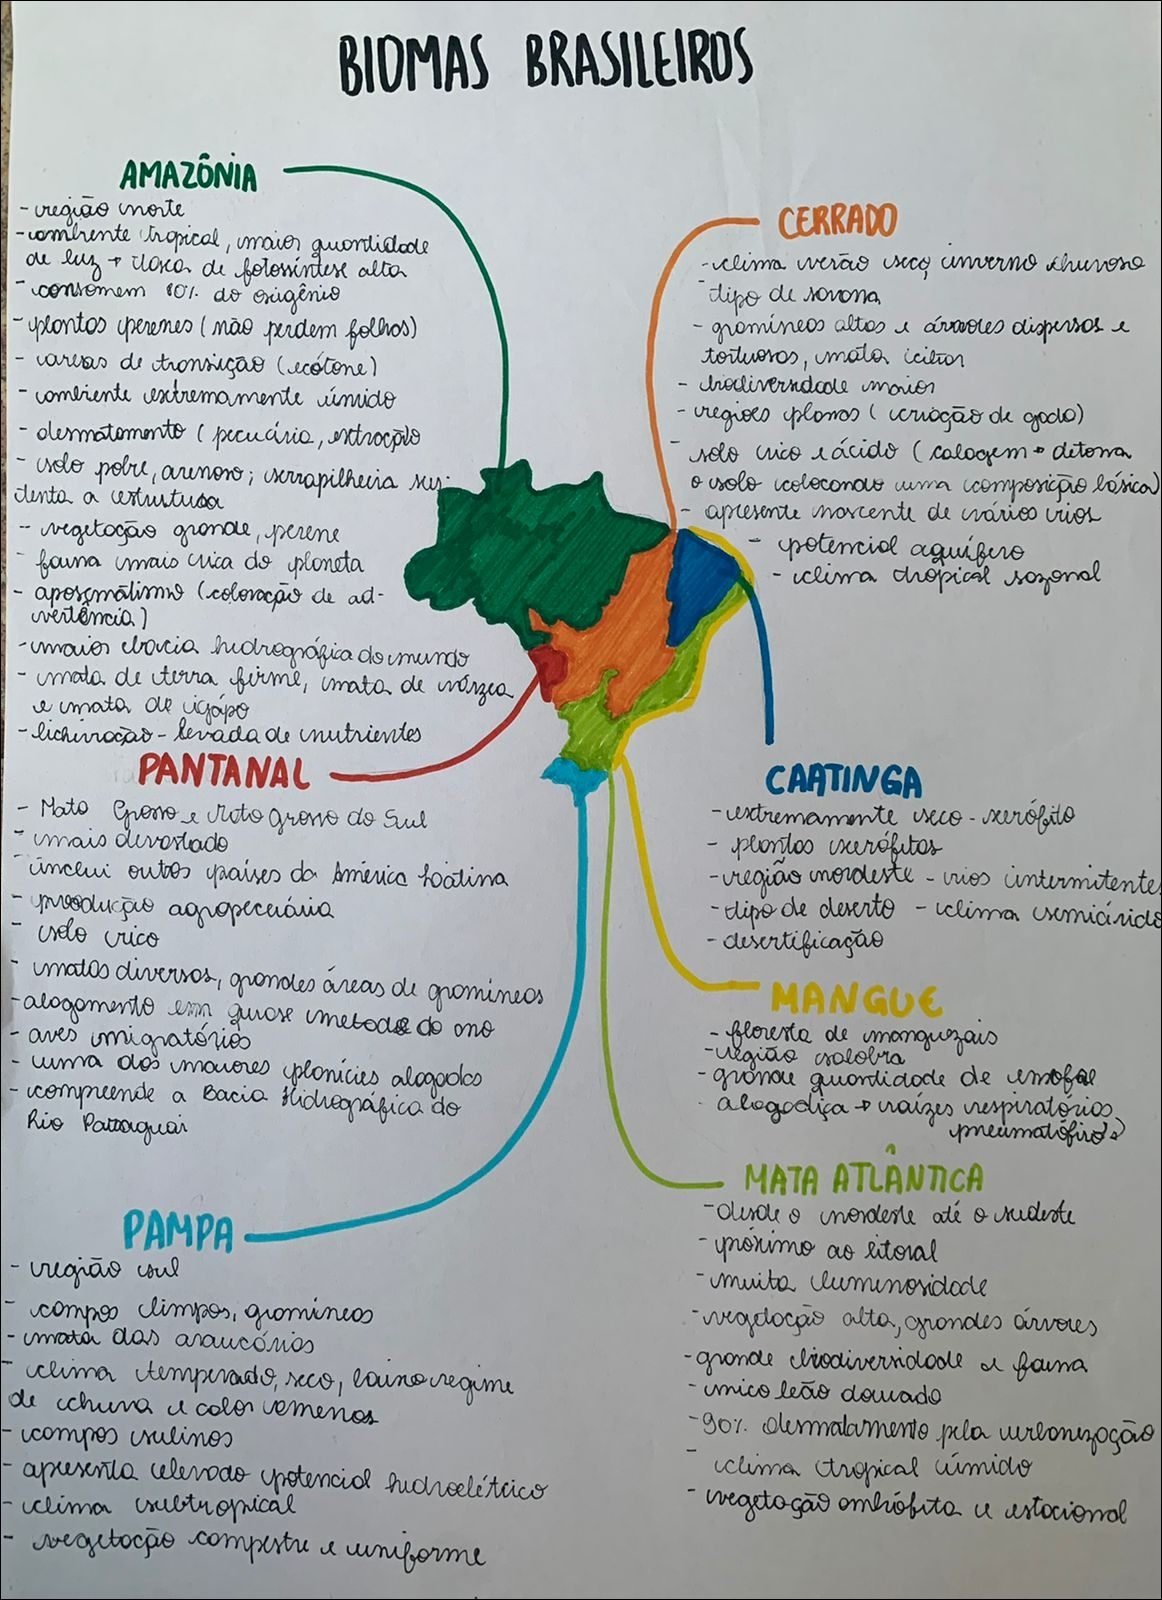 BIOMAS BRASILEIROS
AMAZÔNIA
- região norte
- ambiente tropical, maior quantidade
de luz → taxa de fotossíntese alta
- consomem 80% do oxigênio
- plantas perenes (não perdem folhas)
- áreas de transição (ecótone)
- ambiente extremamente úmido
- desmatamento (pecuária, extração
- solo pobre, arenoso; serrapilheira sus-
tenta a estrutura
- vegetação grande, perene
- fauna mais rica do planeta
- aposematismo (coloração de ad-
vertência)
- maior bacia hidrográfica do mundo
- mata de terra firme, mata de várzea
e mata de igapó
- lichiviação - levada de nutrientes
PANTANAL
- Mato Grosso e Mato Grosso do Sul
- mais devastado
- inclui outros países da América Latina
- produção agropecuária
- solo rico
- matas diversas, grandes áreas de gramíneas
- alagamento em quase metade do ano
- aves migratórias
- uma das maiores planícies alagadas
- compreende a Bacia Hidrográfica do
Rio Paraguai
PAMPA
- região sul
- campos limpos, gramíneas
- mata das araucárias
- clima temperado, seco, baixo regime
de chuva e calor amenos
- campos sulinos
- apresenta elevado potencial hidroelétrico
- clima subtropical
- vegetação campestre e uniforme
CERRADO
- clima verão seco, inverno chuvoso
- tipo de savana
- gramíneas altas e árvores dispersas e
tortuosas, mata ciliar
- biodiversidade maior
- regiões planas (criação de gado)
- solo rico e ácido (calagem →
o solo colocando uma composição básica)
- apresente nascente de vários rios
- potencial aquífero
- clima tropical sazonal
CAATINGA
- extremamente seco - xerófito
- plantas xerófitas
- região nordeste - rios intermitentes
- tipo de deserto - clima semiárido
- desertificação
MANGUE
- floresta de manguezais
- região salobra
- grande quantidade de
- alagadiça → raízes respiratórias
MATA ATLÂNTICA
- desde o nordeste até o sudeste
- próximo ao litoral
- muita luminosidade
- vegetação alta, grandes árvores
- grande biodiversidade e fauna
- mico leão dourado
- 90% desmatamento pela urbanização
- clima tropical úmido
- vegetação ombrófita e estacional